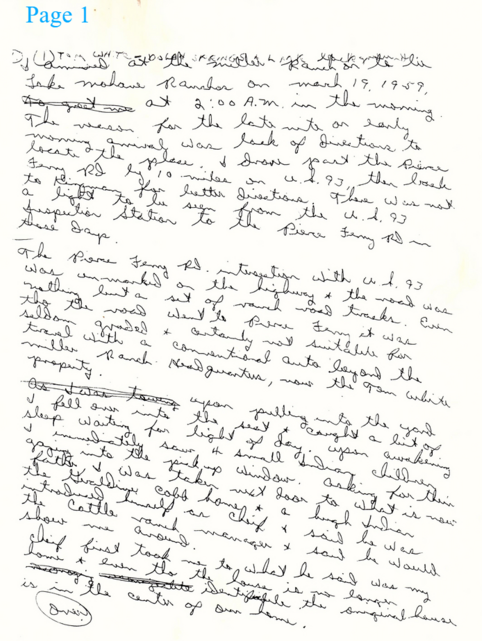 Page 1
I arrived at the Miller Ranch or to the
Lake Mohave Ranchos on March 19, 1959,
at 2:00 A.M. in the morning.
The reason for the late nite or early
morning arrival was lack of directions to
locate the place. I drove past the Pierce
Ferry Rd by 10 miles on U.S. 93, then back
to for better directions. There was not
a light to be seen from the U.S. 93
Inspection Station to the Pierce Ferry Rd in
those days.
The Pierce Ferry Rd. intersection with U.S. 93
was unmarked on the highway & the road was
nothing but a set of ranch road tracks. Even
tho the road went to Pierce Ferry it was
seldom graded & certainly not suitable for
travel with a conventional auto beyond the
Miller Ranch Headquarters, now the Tom White
property.
As I was upon pulling into the yard
I fell over into the seat & caught a bit of
sleep waiting for light of day, upon awakening
I immediately saw 4 small Indian children
gazing into the pickup window. asking for their
father I was taken next door to what is now
the cobb home, & a high Indian
introduced himself as Cheif & said he was
the cattle ranch manager & said he would
show me around.
Cheif first took me to what he said was my
home & even tho the house is no longer
the original house
is in the center of our home.
over